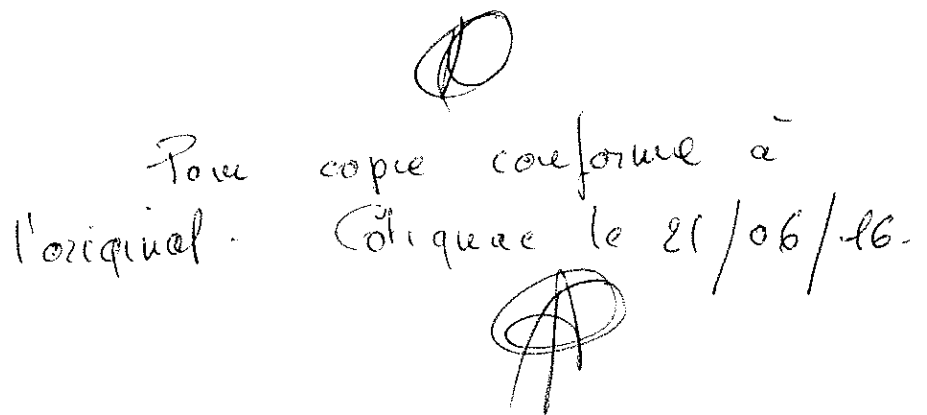 Pour copie conforme à
l'original. Cotignac le 21/06/16.